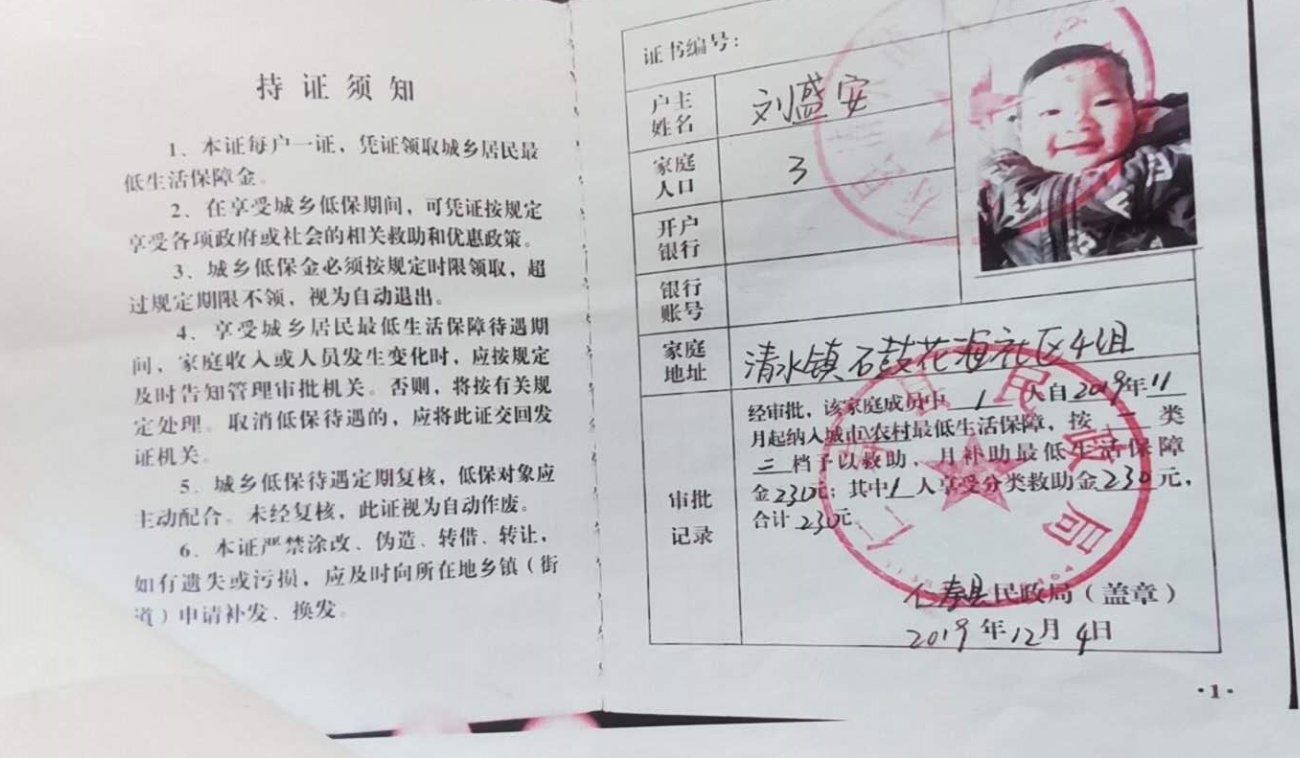 持证须知
1、本证每户一证，凭证领取城乡居民最
低生活保障金。
2、在享受城乡低保期间，可凭证按规定
享受各项政府或社会的相关救助和优惠政策。
3、城乡低保金必须按规定时限领取，超
过规定期限不领，视为自动退出。
4、享受城乡居民最低生活保障待遇期
间，家庭收入或人员发生变化时，应按规定
及时告知管理审批机关。否则，将按有关规
定处理。取消低保待遇的，应将此证交回发
证机关。
5、城乡低保待遇定期复核，低保对象应
主动配合。未经复核，此证视为自动作废。
6、本证严禁涂改、伪造、转借、转让，
如有遗失或污损，应及时向所在地乡镇（街
道）申请补发、换发。
证书编号：
户主姓名 刘盛安
家庭人口 3
开户银行
银行账号
家庭地址 清水镇石鼓花海社区4组
审批记录
经审批，该家庭成员中 1 人自2019年11
月起纳入城市\农村最低生活保障，按 二 类
三 档予以救助，月补助最低生活保障
金230元；其中1人享受分类救助金230元，
合计230元。
仁寿县民政局（盖章）
2019年12月4日
·1·